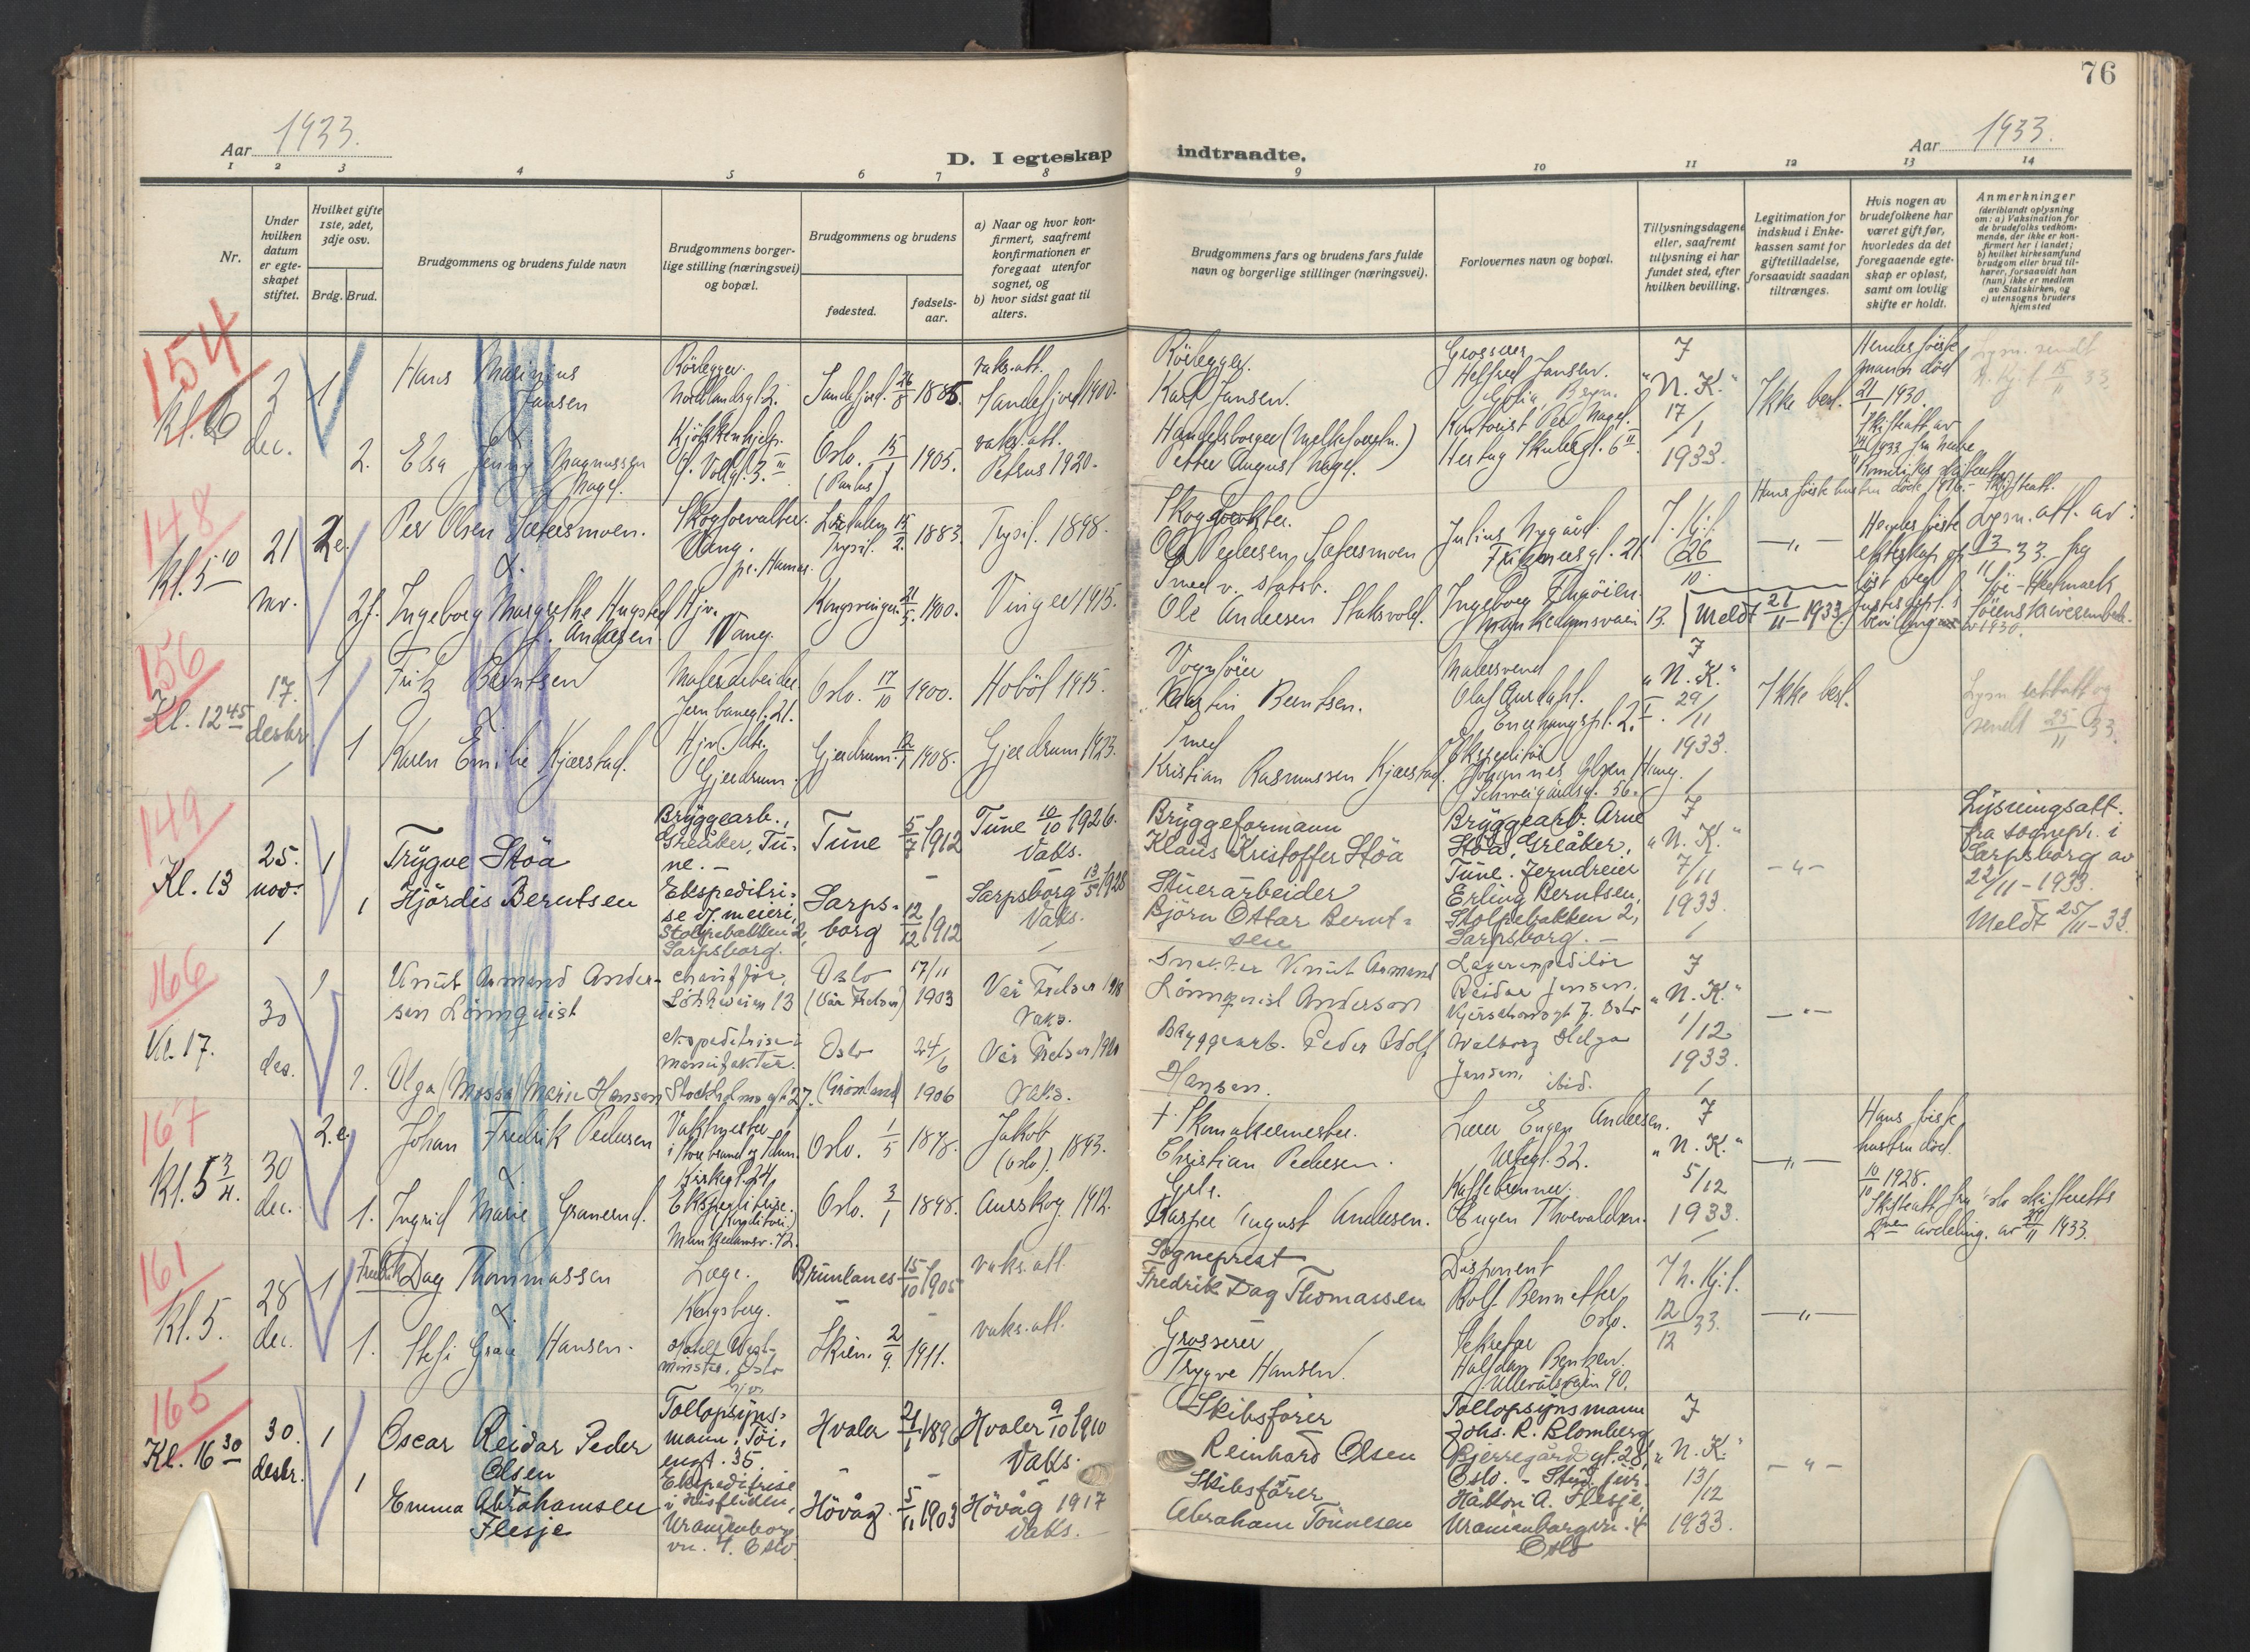 76
Aar 1933.
D. I egteskap
indtraadte.
Aar 1933.
1 2 3 4 5 6 7 8 9 10 11 12 13 14
Nr.
Under
hvilken
datum
er egte-
skapet
stiftet.
Hvilket gifte
1ste, 2det,
3dje osv.
Brdg. Brud.
Brudgommens og brudens fulde navn
Brudgommens borger-
lige stilling (næringsvei)
og bopæl.
Brudgommens og brudens
fødested.
fødsels-
aar.
a) Naar og hvor kon-
firmert, saafremt
konfirmationen er
foregaat utenfor
sognet, og
b) hvor sidst gaat til
alters.
Brudgommens fars og brudens fars fulde
navn og borgerlige stillinger (næringsvei).
Forlovernes navn og bopæl.
Tillysningsdagene
eller, saafremt
tillysning ei har
fundet sted, efter
hvilken bevilling.
Legitimation for
indskud i Enke-
kassen samt for
giftetilladelse,
forsaavidt saadan
tiltrænges.
Hvis nogen av
brudefolkene har
været gift før,
hvorledes da det
foregaaende egte-
skap er opløst,
samt om lovlig
skifte er holdt.
Anmerkninger
(deriblandt oplysning
om: a) Vaksination for
de brudefolks vedkom-
mende, der ikke er kon-
firmert her i landet;
b) hvilket kirkesamfund
brudgom eller brud til-
hører, forsaavidt han
(hun) ikke er medlem
av Statskirken, og
c) utensogns bruders
hjemsted
154
Kl. 6
2
dec.
1
Hans Marinius
Jansen
Rørlegger.
Nordlandsgt. 2.
Sandefjord. 26/8 1885.
vaks. att.
Sandefjord 1900.
Rørlegger.
Karl Jansen.
Grosserer
Jansen.
7
"N. K."
17/1
1933.
Ikke best.
Hendes første
mann død
21/1 1930.
Skifteatt. av
2.
Elsa Jenny Magnussen
Nagel.
Kjøkkenhjelp.
Oslo. 15/1 1905.
(Paulus)
vaks. att.
Petrus 1920.
Petter August Nagel.
Hertug Skulesgt. 6 II
148
Kl. 5 10
21
nov.
2 e.
Per Olsen Sætersmoen.
Skogforvalter.
Vang.
pr. Hamar.
Trysil. 15/2. 1883.
Trysil. 1898.
Ole Pedersen Sætersmoen
Julius Nygård.
Frognersgt. 21.
J. Kjt.
26/10.
— " —
Hans første hustru døde 1916. - Skifteatt.
Hendes første
ekteskap
løst ved
bevilling
Lysn. att. av
13/11 33 fra
2 f.
Ingeborg Margrethe Hugsted
f. Andersen.
Hjv.
Vang.
Kongsvinger. 21/5. 1900.
Vinger 1915.
Smed v. statsb.
Ole Andersen Staksvold.
Ingeborg
Munkedamsveien 13.
Meldt 21/11-1933.
156
Kl. 12 45
17.
desbr.
1
Fritz Berntsen
Malerarbeider.
Jernbanegt. 21.
Oslo. 17/10 1900.
Hobøl 1915.
Vognfører
Martin Berntsen.
Malersvend
Olaf Aurdahl.
Enerhaugspl. 2. I.
7
"N. K."
29/11
1933.
Ikke best.
Lysn. attatt og
sendt 25/11 33.
1
Karen Emilie Kjærstad.
Hjv. dtr.
Gjerdrum.
Gjerdrum. 12/1 1908.
Gjerdrum 1923.
Smed
Kristian Rasmussen Kjærstad.
Ekspeditør
Johannes Olsen Haug.
Schweigaardsg. 56.
149
Kl. 13
25.
nov.
1
Trygve Støa
Bryggearb.,
Greåker, Tu-
ne. -
Tune
5/7 1912
Tune 10/10 1926.
Vaks.
Bryggeformann
Klaus Kristoffer Støa
Bryggearb. Arne
Støa, Greåker,
Tune. Jerndreier
7
"N. K."
7/11
1933
- " -
Lysningsatt.
fra sognepr. i
Sarpsborg av
22/11-1933.
Meldt 25/11-33.
1
Hjördis Berntsen
Ekspeditri-
se i meieri,
Stolpebakken 2,
Sarpsborg.
Sarps-
borg
12/12 1912
Sarpsborg 13/5 1928
Vaks.
Stuerarbeider
Björn Ottar Bernt-
sen
Erling Berntsen,
Stolpebakken 2,
Sarpsborg. -
166
Kl. 17.
30
des.
1
Knut Armand Ander-
sen Lönnquist
chauffør,
13
Oslo
(Vår Frelser)
17/11
1903
Vår Frelser 1918
Vaks.
Knut Armand
Lönnquist Anderson
Lagerexpeditør
Reidar Jensen.
7
"N. K."
1/12
1933.
- " -
1.
Olga (Mossa) Marie Hansen
ekspeditrise i
manufaktur.
Stockholmsgt. 27.
Oslo
(Grönland)
24/6
1906
Vår Frelser 1920
Vaks.
Bryggearb. Peder Adolf
Hansen.
Walborg Helga
Jensen, ibid.
167
Kl. 5 3/4.
30
dec.
2. e.
Johan Fredrik Pedersen
Vaktmester
Kirkegt. 24.
Oslo. 1/5 1878.
Jakob
(Oslo). 1893.
+ Skomakermester.
Christian Pedersen.
Lærer Eugen Andersen.
Urtegt. 32.
7
"N. K."
5/12
1933.
— " —
Hans første
hustru død.
10/10 1928.
Skifteatt. fra Oslo skifteretts
avdeling. av 1933.
1.
Ingrid Marie Granerud.
Ekspeditrise.
(Konditori.)
Munkedamsv. 72.
Oslo. 3/1 1898.
Aurskog. 1912.
Kasper August Andersen.
Kaffebrenner.
Eugen Thorvaldsen.
161
Kl. 5.
28
dec.
1
Fredrik Dag Thommassen
Læge.
Kongsberg.
Brunlanes 15/10 1905
vaks. att.
Sogneprest
Fredrik Dag Thomassen
Disponent
Rolf Bennetter
Oslo.
12/12 33.
— " —
1.
Stefi Grace Hansen.
Hotell West-
minster, Oslo
Skien. 2/9. 1911.
vaks. att.
Grosserer
Trygve Hansen.
Sekretær
Halfdan Bentzen.
Ullevålsveien 90.
165
Kl. 16 30
30.
desbr.
1
Oscar Reidar Peder
Olsen
Tollopsyns-
mann, Töi-
engt. 35.
Hvaler
21/1 1896
Hvaler 9/10 1910
Vaks.
Skibsförer
Reinhard Olsen
Tollopsynsmann
Johs. R. Blomberg
Bjerregårdsgt. 28,
Oslo. - Stud. jur.
7
"N. K."
13/12
1933.
- " -
1
Emma Abrahamsen
Flesje
Ekspeditrise
Uranienborg
vn. 4. Oslo.
Hövåg.
5/11 1903
Hövåg 1917
Vaks. -
Skibsförer
Abraham Tönnesen
Håkon A. Flesje,
Uranienborgvn. 4
Oslo